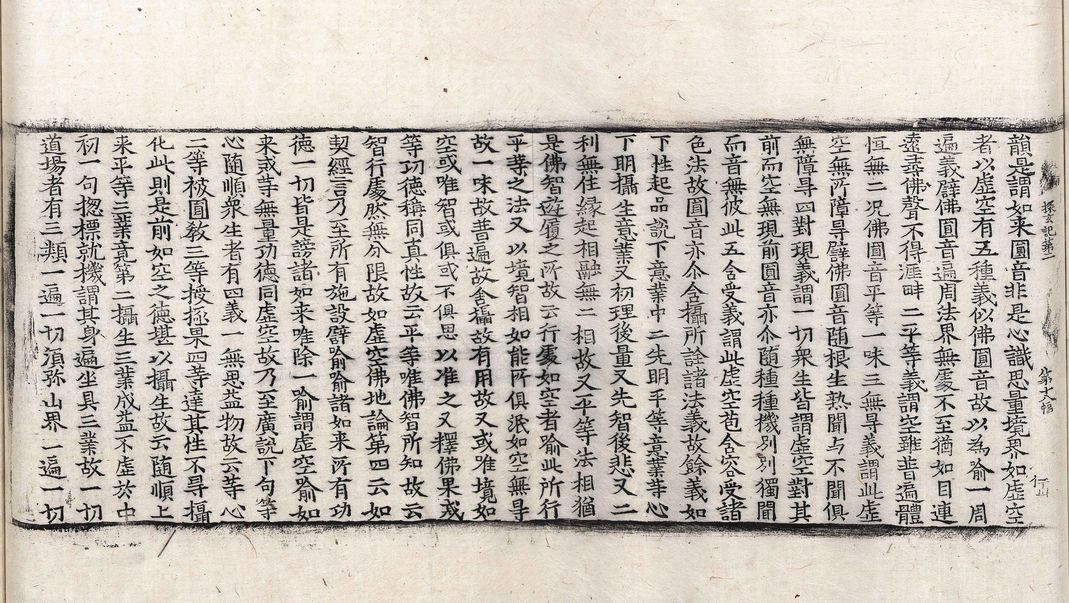 探玄記第二
第六幅
行山
韻是謂如来圓音非是心識思量境界如虛空
者以虛空有五種義似佛圓音故以為喻一周
遍義譬佛圓音遍周法界無處不至猶如目連
遠尋佛聲不得涯畔二平等義謂空雖普遍體
恒無二况佛圓音平等一味三無㝵義謂此虛
空無所障㝵譬佛圓音随根生熟聞与不聞俱
無障㝵四對現義謂一切衆生皆謂虛空對其
前而空無現前圓音亦尒随種種機別別獨聞
而音無彼此五含受義謂此虛空苞含容受諸
色法故圓音亦尒含攝所詮諸法義故餘義如
下性起品說下意業中二先明平等意業䒭心
下明攝生意業又初理後量又先智後悲又二
利無住緣起相融無二相故又平等法相猶
是佛智遊履之所故云行處如空者喻此所行
平等之法又以境智相如能所俱泯如空無㝵
故一味故普遍故含攝故有用故又或唯境如
空或唯智或俱或不俱思以准之又釋佛果或
等功德稱同真性故云平等唯佛智所知故云
智行處然無分限故如虛空佛地論第四云如
契經言乃至所有施設譬喻喻諸如来所有功
德一切皆是謗諸如来唯除一喻謂虛空喻如
来戒等無量功德同虛空故乃至廣說下句等
心随順衆生者有四義一無惡益物故云等心
二等被圓教三等授極果四等達其性不㝵攝
化此則是前如空之德堪以攝生故云随順上
来平等三業竟第二攝生三業成益不虛於中
初一句揔標就機謂其身遍坐具三業故一切
道場者有三類一遍一切須弥山界一遍一切